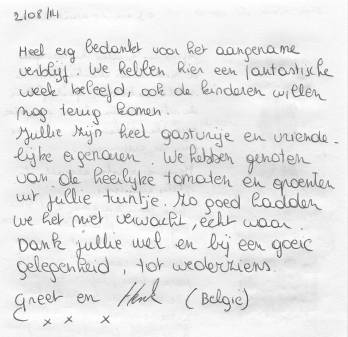 2/08/14
Heel erg bedankt voor het aangename
verblijf. We hebben hier een fantastische
week beleefd, ook de kinderen willen
nog terug komen.
Jullie zijn heel gastvrije en vriende-
lijke eigenaren. We hebben genoten
van de heerlijke tomaten en groenten
uit jullie tuintje. Zo goed hadden
we het niet verwacht, echt waar.
Dank jullie wel en bij een goeie
gelegenheid, tot wederziens.
Greet en Henk (Belgie)
x x x